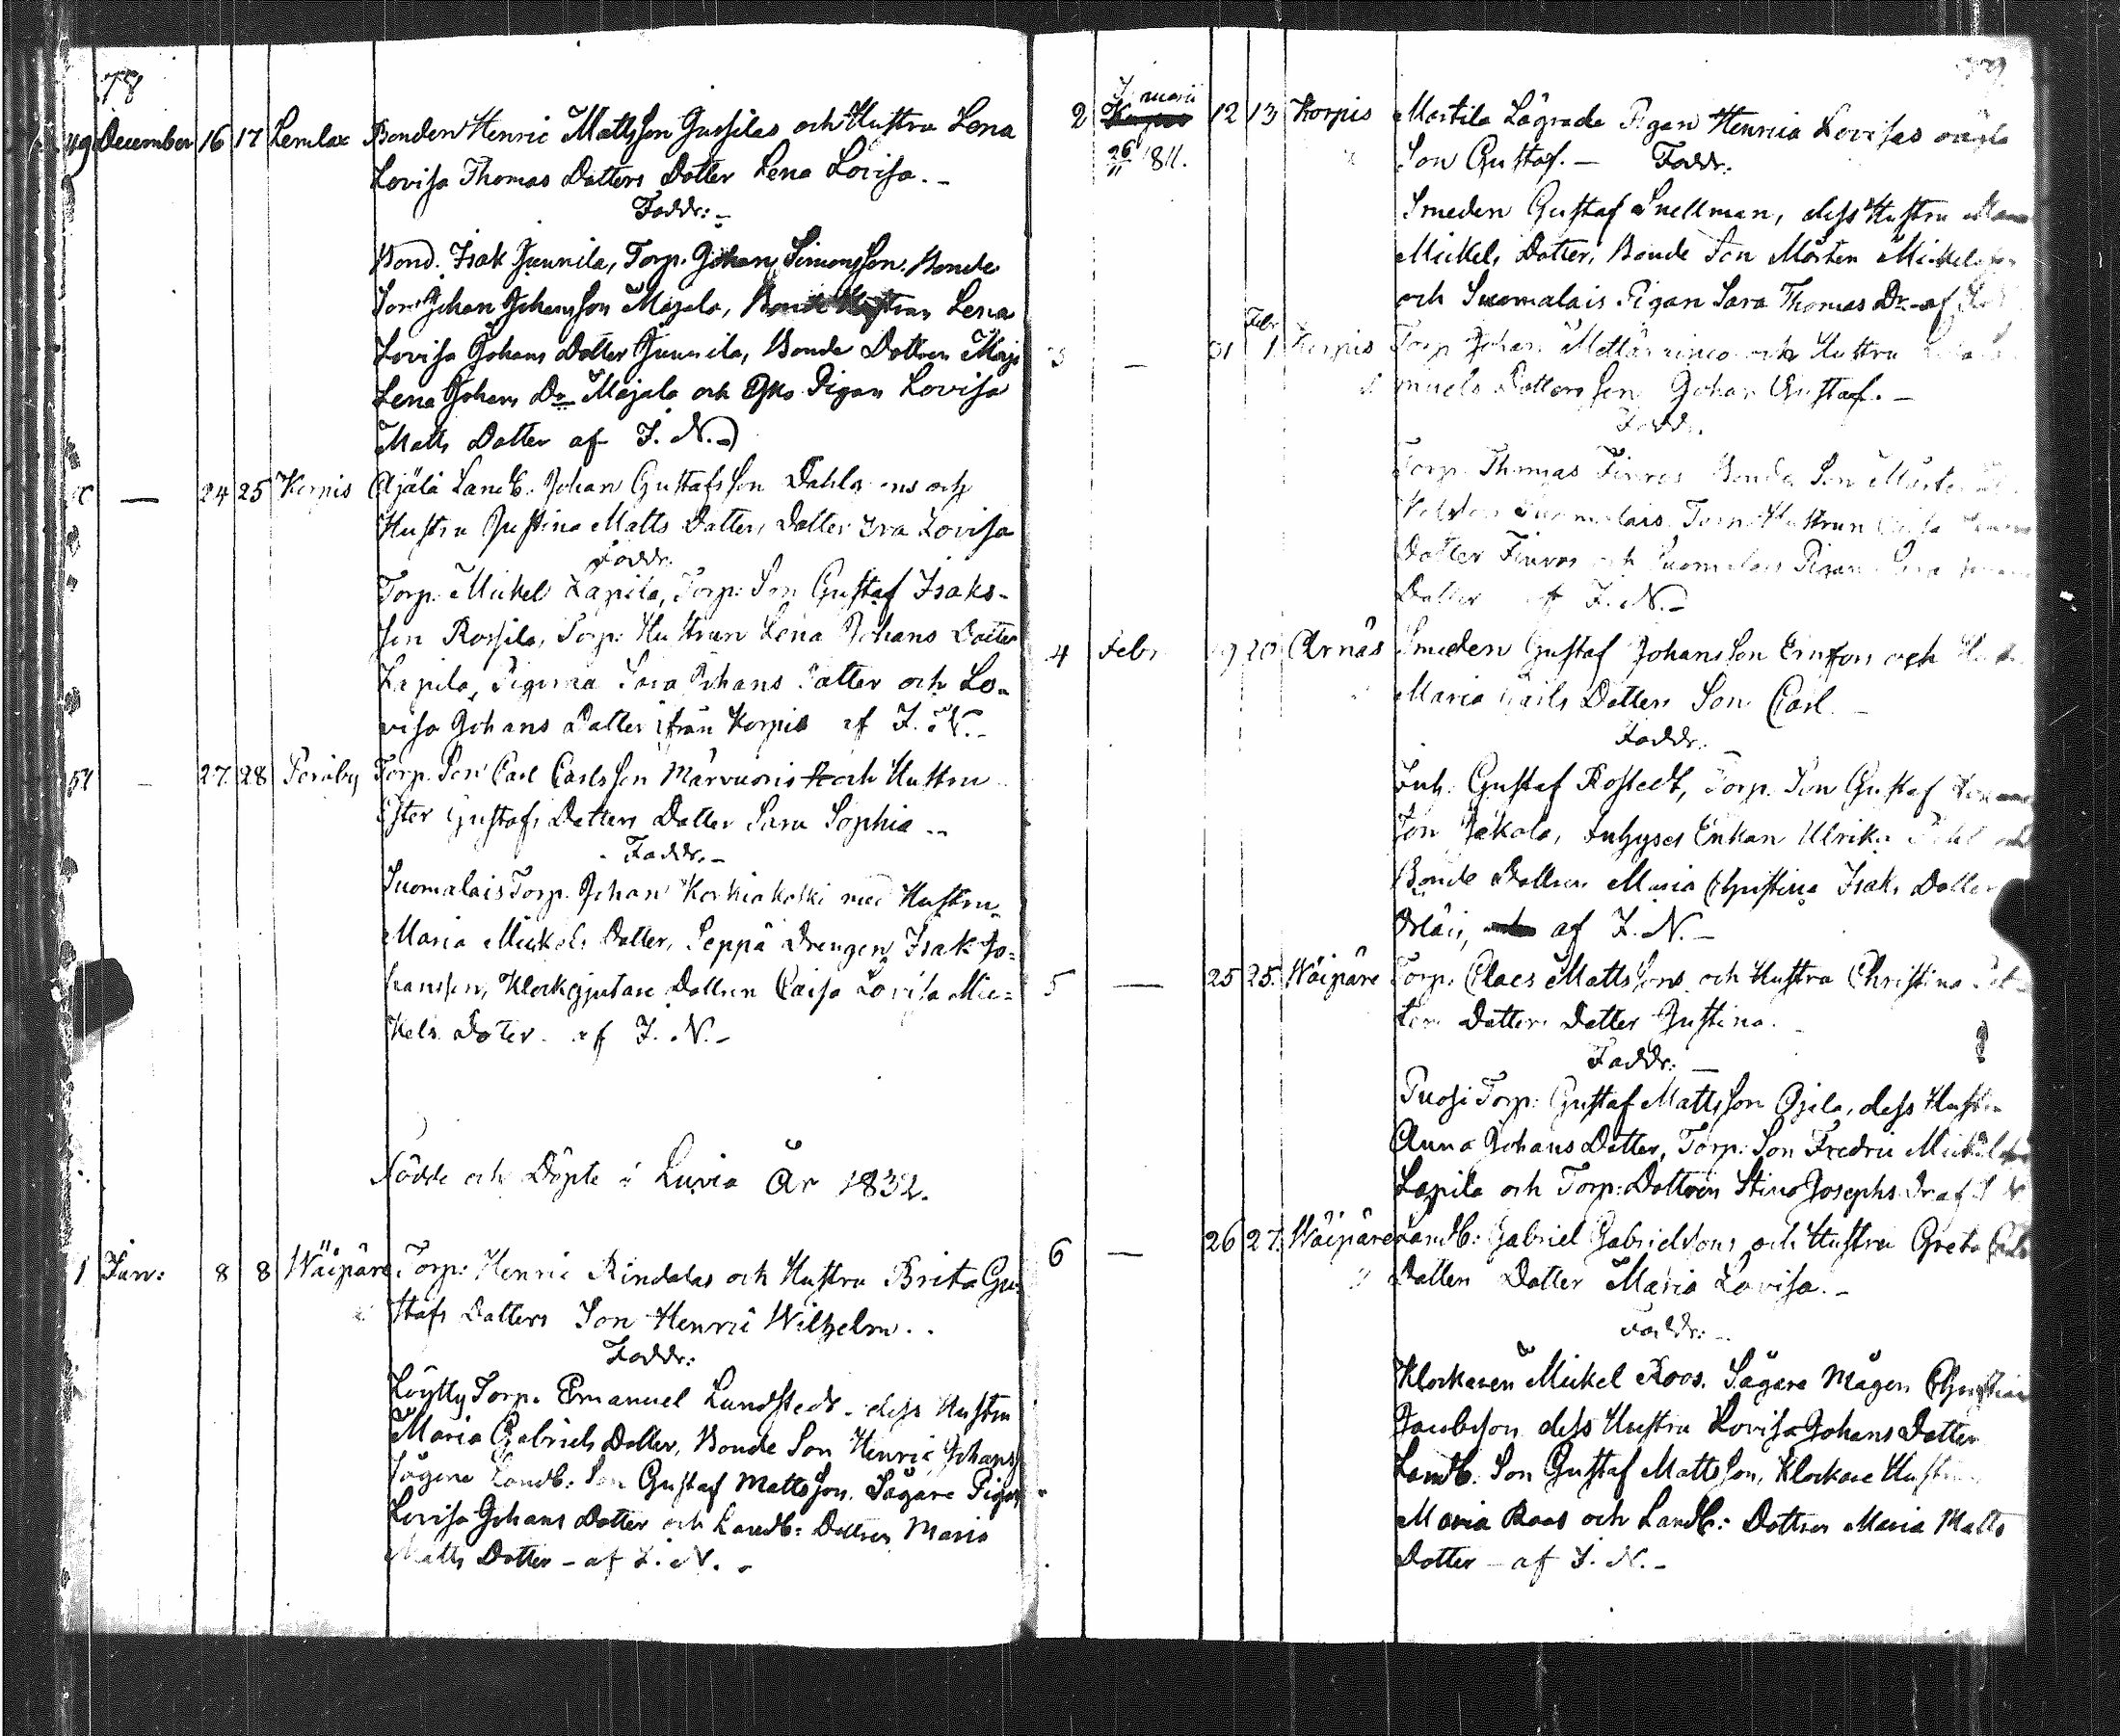 78
49 December 16 17 Lemlax Bonden Henric Mattsson Gussilas och Hustru Lena
Lovisa Thomas Dotters Dotter Lena Lovisa. -
Faddr: -
Bond. Isak Junnila, Torp. Johan Simonsson. Bonde
Son Johan Johansson Majala, Lena
Lovisa Johans Dotter Junnila, Bonde Dottren Maja
Lena Johans Dr Majala och Pigan Lovisa
Matts Dotter af I. N. -
— 24 25 Korpis Ajälä Landb. Johan Gustafsson och
Hustru Justina Matts Dotters Dotter Eva Lovisa
Faddr.
Torp. Mickel Lapila, Torp: Son Gustaf Isaks-
son Rossila, Torp: Hustrun Lena Johans Dotter
Lapila, Pigorna Sara Johans Dotter och Lo-
visa Johans Dotter ifrån Korpis af I. N. -
51 — 27 28 Peräby Torp. Son Carl Carlsson och Hustru
Ester Gustafs Dotters Dotter Sara Sophia -
Faddr. -
Suomalais Torp. Johan Korkiakoski med Hustru
Maria Mickels Dotter, Seppä Drengen Isak Jo-
hansson, Klockgjutare Dottren Caisa Lovisa Mic-
kels Doter. af I. N. -
Födde och Döpte i Luvia År 1832.
1 Jan: 8 8 Wäipäre Torp: Henric Rindalas och Hustru Brita Gu-
stafs Dotters Son Henric Wilhelm. .
Faddr:
Löytty Torp. Emanuel Lundstedt. dess Hustru
Maria Gabriels Dotter, Bonde Son Henric Johans
Sägare Landb: Son Gustaf Mattsson. Sägare Pigan
Lovisa Johans Dotter och Landb: Dottren Maria
Matts Dotter - af I. N. -
79
2 12 13 Korpis Martila Lägrade Pigan Henrica Lovisas oägta
26/11 1811. Son Gustaf. — Faddr.
Smeden Gustaf Snellman, dess Hustru
Mickels Dotter, Bonde Son Mårten Mickelsson
och Suomalais Pigan Sara Thomas Dr. af
3 — 31 Febr 1 Korpis Torp Johan och Hustru
muels Dotters son Johan Gustaf. -
Faddr.
Torp. Thomas Finros Bonde Son Mårten
Suomalais. Torp. Hustrun
Dotter Finros och Suomalais Pigan Sara
Dotter af I. N. -
4 Febr 19 20 Arnäs Smeden Gustaf Johansson och
Maria Carls Dotters Son Carl. -
Faddr. -
Inh. Gustaf Rostedt, Torp. Son Gustaf
son Jakola, Inhyses Enkan Ulrika
Bonde Dottren Maria Christina Isaks Dotter
af I. N. -
5 — 25 25. Wäipäre Torp. Claes Mattssons och Hustru Christina
Dotters Dotter Justina.
Faddr: —
Puosi Torp: Gustaf Mattsson Ojila, dess Hustru
Anna Johans Dotter, Torp: Son Fredric Mickelsson
Lapila och Torp: Dottren Stina Josephs Dr af I N
6 — 26 27. Wäipäre Landb: Gabriel Gabrielssons och Hustru Greta
Dotters Dotter Maria Lovisa. -
Faddr: -
Klockaren Mickel Roos. Sägare Mågen Christian
Jacobsson dess Hustru Lovisa Johans Dotter
Landb. Son Gustaf Mattsson, Klockare Hustru
Maria Roos och Landb: Dottren Maria Matts
Dotter - af I. N. -